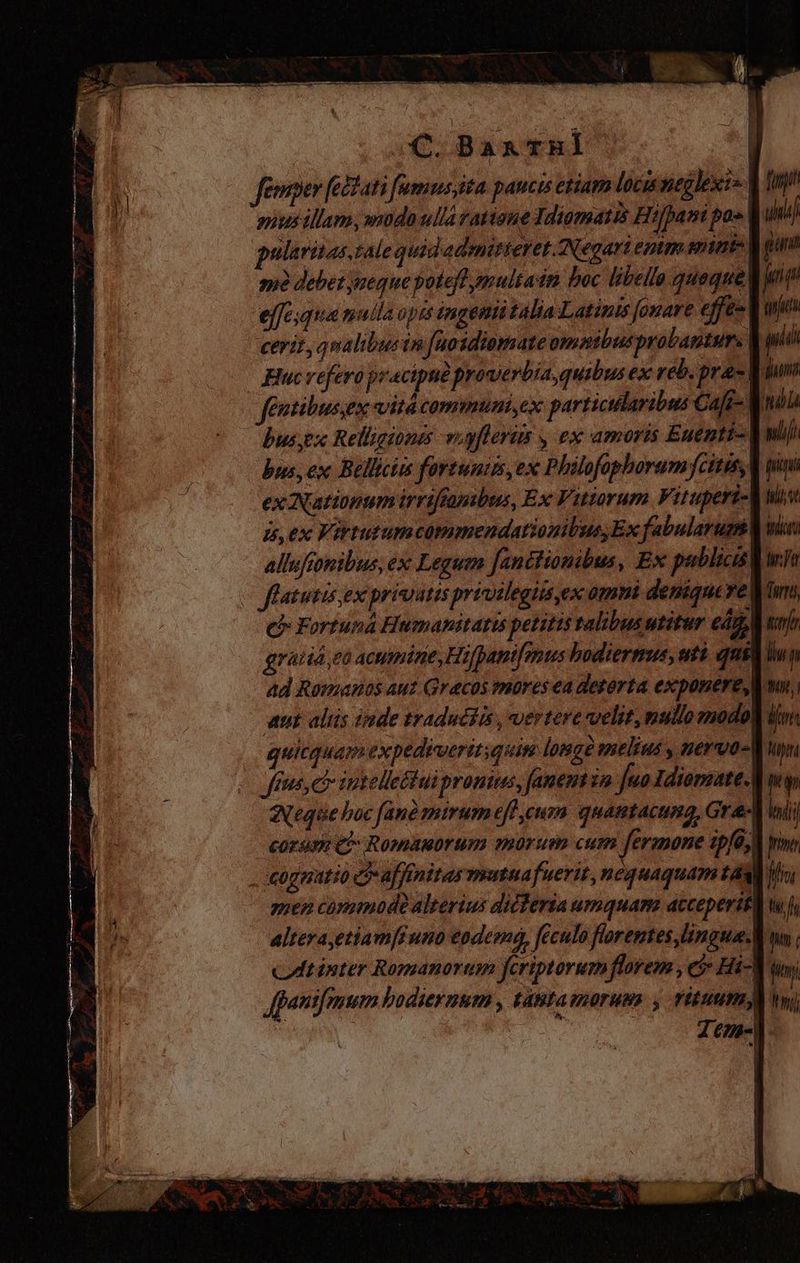 C. BARTHI
semper sectati sumus, ita paucis etiam locis neglexi-
mus illam, modo ullâ ratione Idiomatis Hispani po-
pularitas, tale quid admitteret. Negari enim mini-
mè debet, neque potest, multa in hoc libello quoque
esse, qua nulla opis ingenii talia Latinis sonare effe-
cerit, qualibus in suo idiomate omnibus probantur.
Huc refero pracipuè proverbia, quibus ex reb. præ-
sentibus, ex vitâ communi, ex particularibus Casi-
bus, ex Relligionis mysteriis, ex amoris Euenti-
bus, ex Bellicis fortuniis, ex Philosophorum scitis,
ex Nationum irrisionibus, Ex Vitiorum Vituperi-
is, ex Virtutum commendationibus, Ex fabularum
allusionibus, ex Legum sanctionibus, Ex publicis
statutis, ex privatis privilegiis, ex omni denique re
& Fortunâ Humanitatis petitis talibus utitur eâq;
gratiâ, eo acumine, Hispanismus hodiernus, uti qui
ad Romanos aut Græcos mores ea detorta exponere,
aut aliis inde traductis, vertere velit, nullo modo
quicquam expediverit; quin longè melius, nervo-
sius, & intellectui pronius, sanent in suo Idiomate.
Neque hoc sanè mirum est, cum quantacunq, Græ-
corum & Romanorum morum cum sermone ipso,
cognatio & affinitas mutua fuerit, nequaquam ta-
men commodè alterius dicteria umquam acceperit
altera, etiamsi uno eodemq, seculo florentes, lingua.
At inter Romanorum scriptorum florem, & Hi-
spanismum hodiernum, tanta morum, rituum,
Tem-